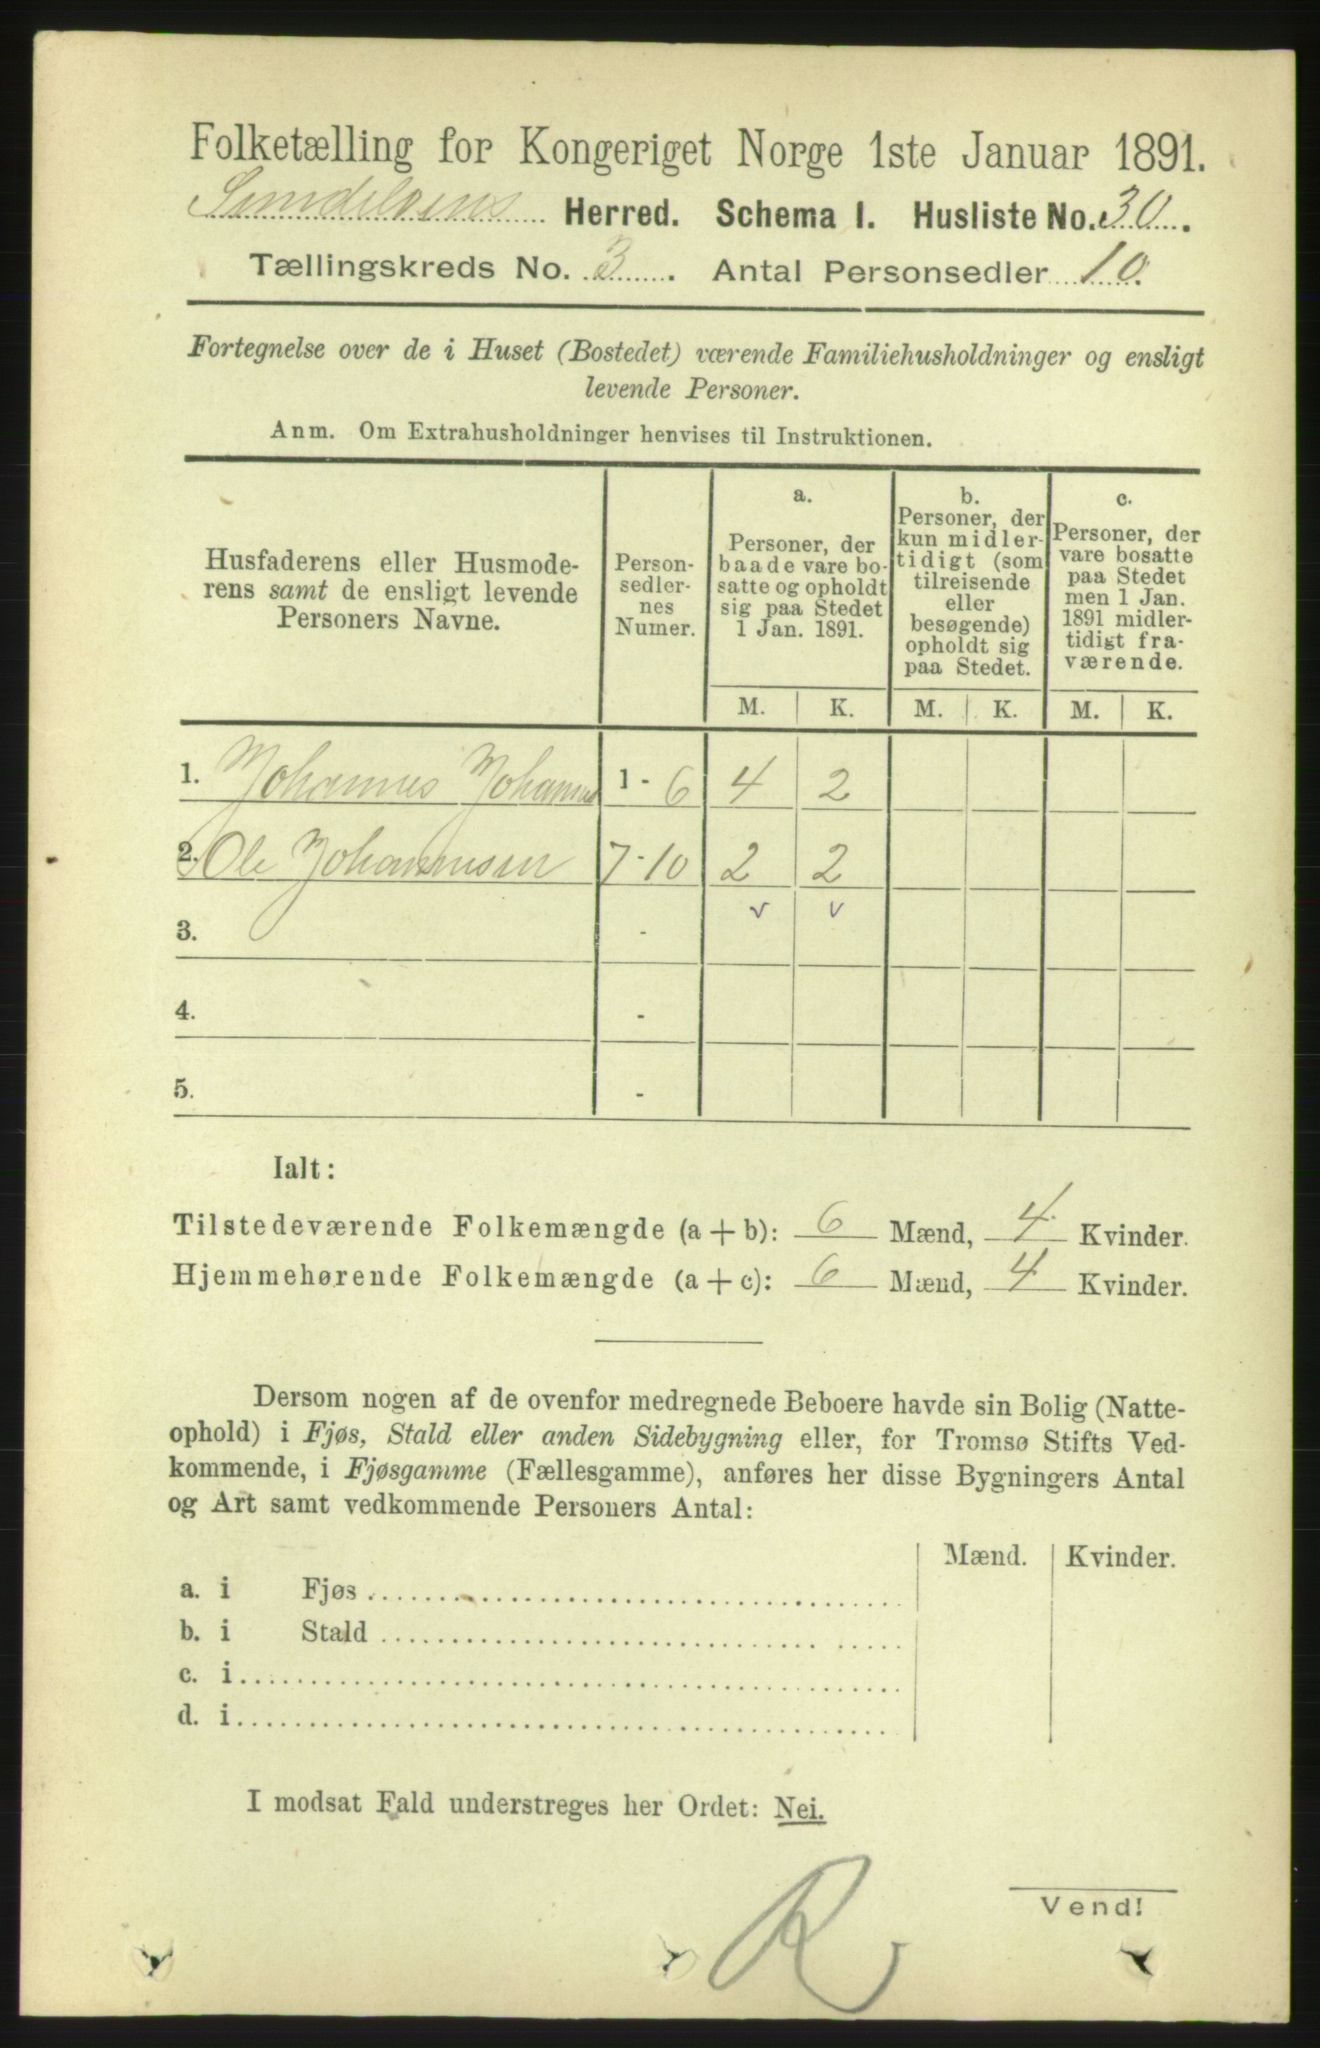 Folketælling for Kongeriget Norge 1ste Januar 1891.
Herred. Schema I. Husliste No. 30.
Tællingskreds No. 3. Antal Personsedler 10.
Fortegnelse over de i Huset (Bostedet) værende Familiehusholdninger og ensligt
levende Personer.
Anm. Om Extrahusholdninger henvises til Instruktionen.
Husfaderens eller Husmode-
rens samt de ensligt levende
Personers Navne.
Person-
sedler-
nes
Numer.
a.
Personer, der
baade vare bo-
satte og opholdt
sig paa Stedet
1 Jan. 1891.
b.
Personer, der
kun midler-
tidigt (som
tilreisende
eller
besøgende)
opholdt sig
paa Stedet.
c.
Personer, der
vare bosatte
paa Stedet
men 1 Jan.
1891 midler-
tidigt fra-
værende.
M. K. M. K. M. K.
1. Johannes 1 - 6 4 2
2. Ole Johannesen 7 - 10 2 2
v v
3. -
4. -
5. -
Ialt:
Tilstedeværende Folkemængde (a + b): 6 Mænd, 4 Kvinder.
Hjemmehørende Folkemængde (a + c): 6 Mænd, 4 Kvinder.
Dersom nogen af de ovenfor medregnede Beboere havde sin Bolig (Natte-
ophold) i Fjøs, Stald eller anden Sidebygning eller, for Tromsø Stifts Ved-
kommende, i Fjøsgamme (Fællesgamme), anføres her disse Bygningers Antal
og Art samt vedkommende Personers Antal:
Mænd. Kvinder.
a. i Fjøs
b. i Stald
c. i
d. i
I modsat Fald understreges her Ordet: Nei.
R
Vend!